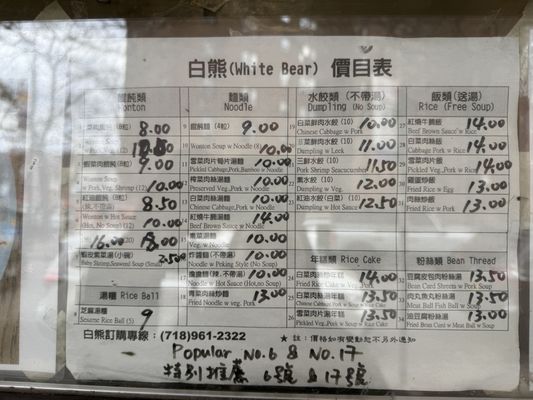 白熊(White Bear) 價目表
餛飩類
Wonton
8.00
Wonton Soup
9.00
10.00
8.50
Wonton w Hot Sauce
(Hot, No Soup) (12) 10.00
16.00 18.00
蝦皮紫菜湯(小碗)
Baby Shrimp, Seaweed Soup (Small) 2.50
湯糰 Rice Ball
芝麻湯糰
Sesame Rice Ball (5) 9
麵類
Noodle
餛飩麵 (4粒) 9.00
10 Wonton Soup w Noodle (8) 10.00
雪菜肉片筍片湯麵
Pickled Veg.,Cabbage w Pork,Bamboo w Noodle 10.00
榨菜肉絲湯麵
Preserved Veg.,Pork w Noodle 10.00
白菜肉絲湯麵
Chinese Cabbage,Pork w Noodle 10.00
紅燒牛腩湯麵
Beef Brown Sauce w Noodle 14.00
素菜湯麵
Veg. w Noodle 10.00
炸醬麵 (不帶湯)
Noodle w Peking Style (No Soup) 10.00
擔擔麵 (辣.不帶湯)
Noodle w Hot Sauce (Hot,no Soup) 10.00
青菜肉絲炒麵
Fried Noodle w Veg.,Pork 13.00
水餃類 (不帶湯)
Dumpling (No Soup)
白菜鮮肉水餃 (10)
Chinese Cabbage w Pork 10.00
韭菜鮮肉水餃 (10)
Dumpling w Leek 11.00
三鮮水餃 (10)
Pork Shrimp Seacucumber 11.50
素水餃 (10)
Dumpling w Veg. 12.00
紅油水餃(白菜) (10)
Dumpling w Hot Sauce 12.50
年糕類 Rice Cake
白菜肉絲炒年糕
Fried Chinese Cabbage,Pork w Rice Cake 14.00
白菜肉絲湯年糕
Chinese Cabbage,Pork w Soup w Rice Cake 13.50
雪菜肉絲湯年糕
Pickled Veg.,Pork w Soup w Rice Cake 13.50
飯類(送湯)
Rice (Free Soup)
紅燒牛腩飯
Beef Brown Sauce w Rice 14.00
白菜肉絲飯
Cabbage Pork w Rice 14.00
雪菜肉片飯
Pickled Veg.,Pork w Rice 14.00
雞蛋炒飯
Fried Rice w Egg 13.00
肉絲炒飯
Fried Rice w Pork 13.00
粉絲類 Bean Thread
豆腐皮包肉粉絲湯
Bean Curd Shreets w Pork Soup 13.50
肉丸魚丸粉絲湯
Meat Ball Fish Ball w Soup 13.50
油豆腐粉絲湯
Fried Bean Curd w Meat Ball w Soup 13.00
白熊訂購專線: (718)961-2322
★ 註: 價格如有變動恕不另外通知
Popular No.6 & No.17
特別推薦 6號 & 17號